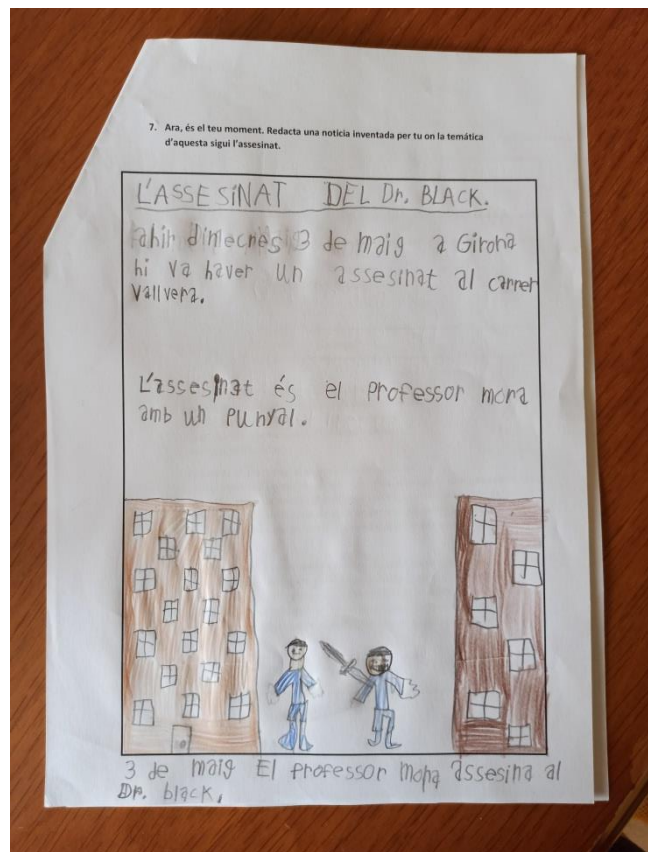 7. Ara, és el teu moment. Redacta una notícia inventada per tu on la temàtica
d'aquesta sigui l'assesinat.
L'ASSESINAT DEL Dr. BLACK.
ahir dimecres 3 de maig a Girona
hi va haver un assesinat al carrer
Vallvera.
L'assesinat és el Professor mora
amb un Punyal.
3 de maig El Professor mora assesina al
Dr. black.